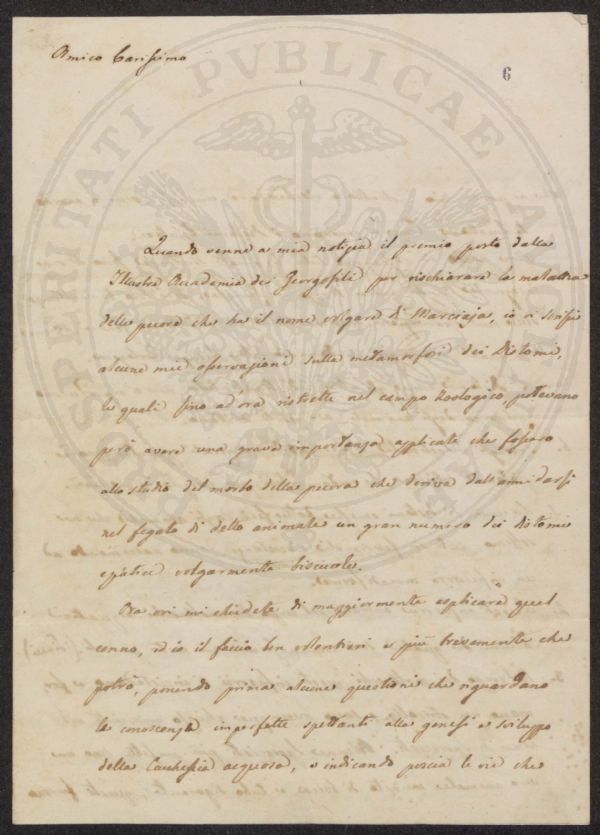 Amico Carissimo
6
PROSPERITATI PUBLICAE AU
Quando venne a mia notizia il premio posto dalla
Illustre Accademia dei Georgofili per rischiarare la malattia
delle pecore che ha il nome volgare di Marciaja, io vi scrissi
alcune mie osservazioni sulla metamorfosi dei Distomi,
le quali fino ad ora ristrette nel campo Zoologico, potevano
però avere una grave importanza applicate che fossero
allo studio del morbo della pecora che deriva dall'annidarsi
nel fegato di detto animale un gran numero dei Distomi
epatici volgarmente biscuole.
Ora voi mi chiedete di maggiormente esplicare quel
cenno, ed io il faccio ben volentieri e più brevemente che
potrò, ponendo prima alcune questioni che riguardano
le conoscenze imperfette spettanti alla genesi e sviluppo
della Cachessia acquosa, e indicando poscia le vie che